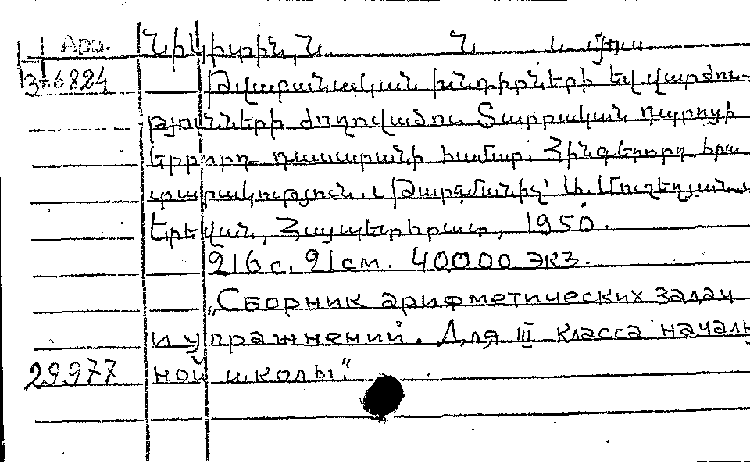 Арм. Նիկիտին, Ն. Ն. և ուրիշ.
376824 Թվաբանական խնդիրների եվ վարժու-
թյունների ժողովածու. Տարրական դպրոցի
երրորդ դասարանի համար. Հինգերորդ հրա-
տարակություն. Թարգմանիչ՝ Ա. Մուշեղյան.
Երեվան, Հայպետհրատ, 1950.
216 с. 21 см. 40000 экз.
„Сборник арифметических задач
и упражнений. Для III класса началь-
29977 ной школы“.